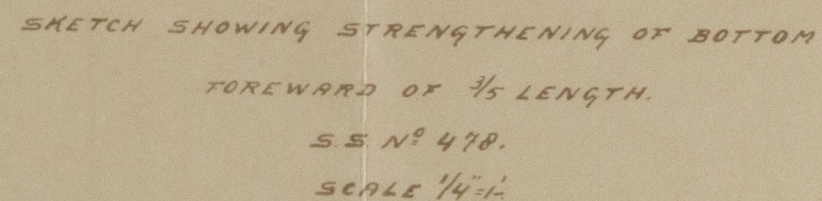 SKETCH SHOWING STRENGTHENING OF BOTTOM
FOREWARD OF 3/5 LENGTH.
S.S. Nº 478.
SCALE 1/4"=1'